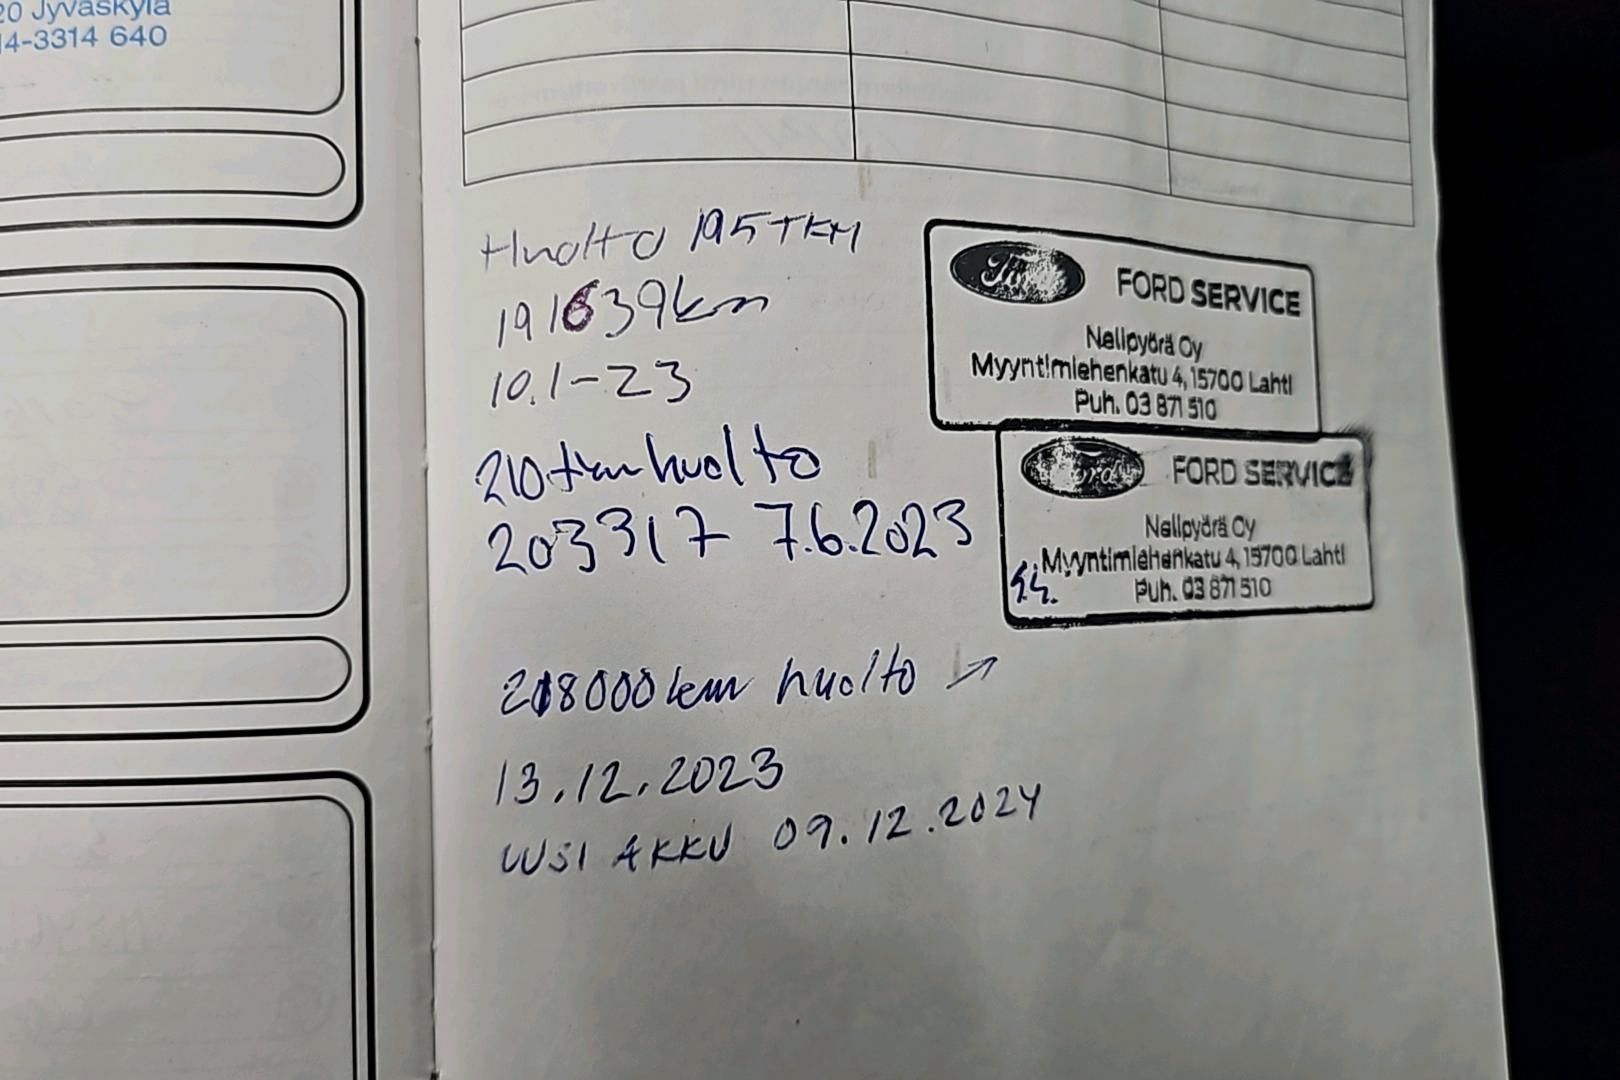 20 Jyväskylä
14-3314 640
Huolto 195TKM
191639km
10.1-23
210 tkm huolto
203317 7.6.2023
218000km huolto →
13.12.2023
UUSI AKKU 09.12.2024
Ford
FORD SERVICE
Nelipyörä Oy
Myyntimiehenkatu 4, 15700 Lahti
Puh. 03 871 510
Ford
FORD SERVICE
Nelipyörä Oy
Myyntimiehenkatu 4, 15700 Lahti
Puh. 03 871 510